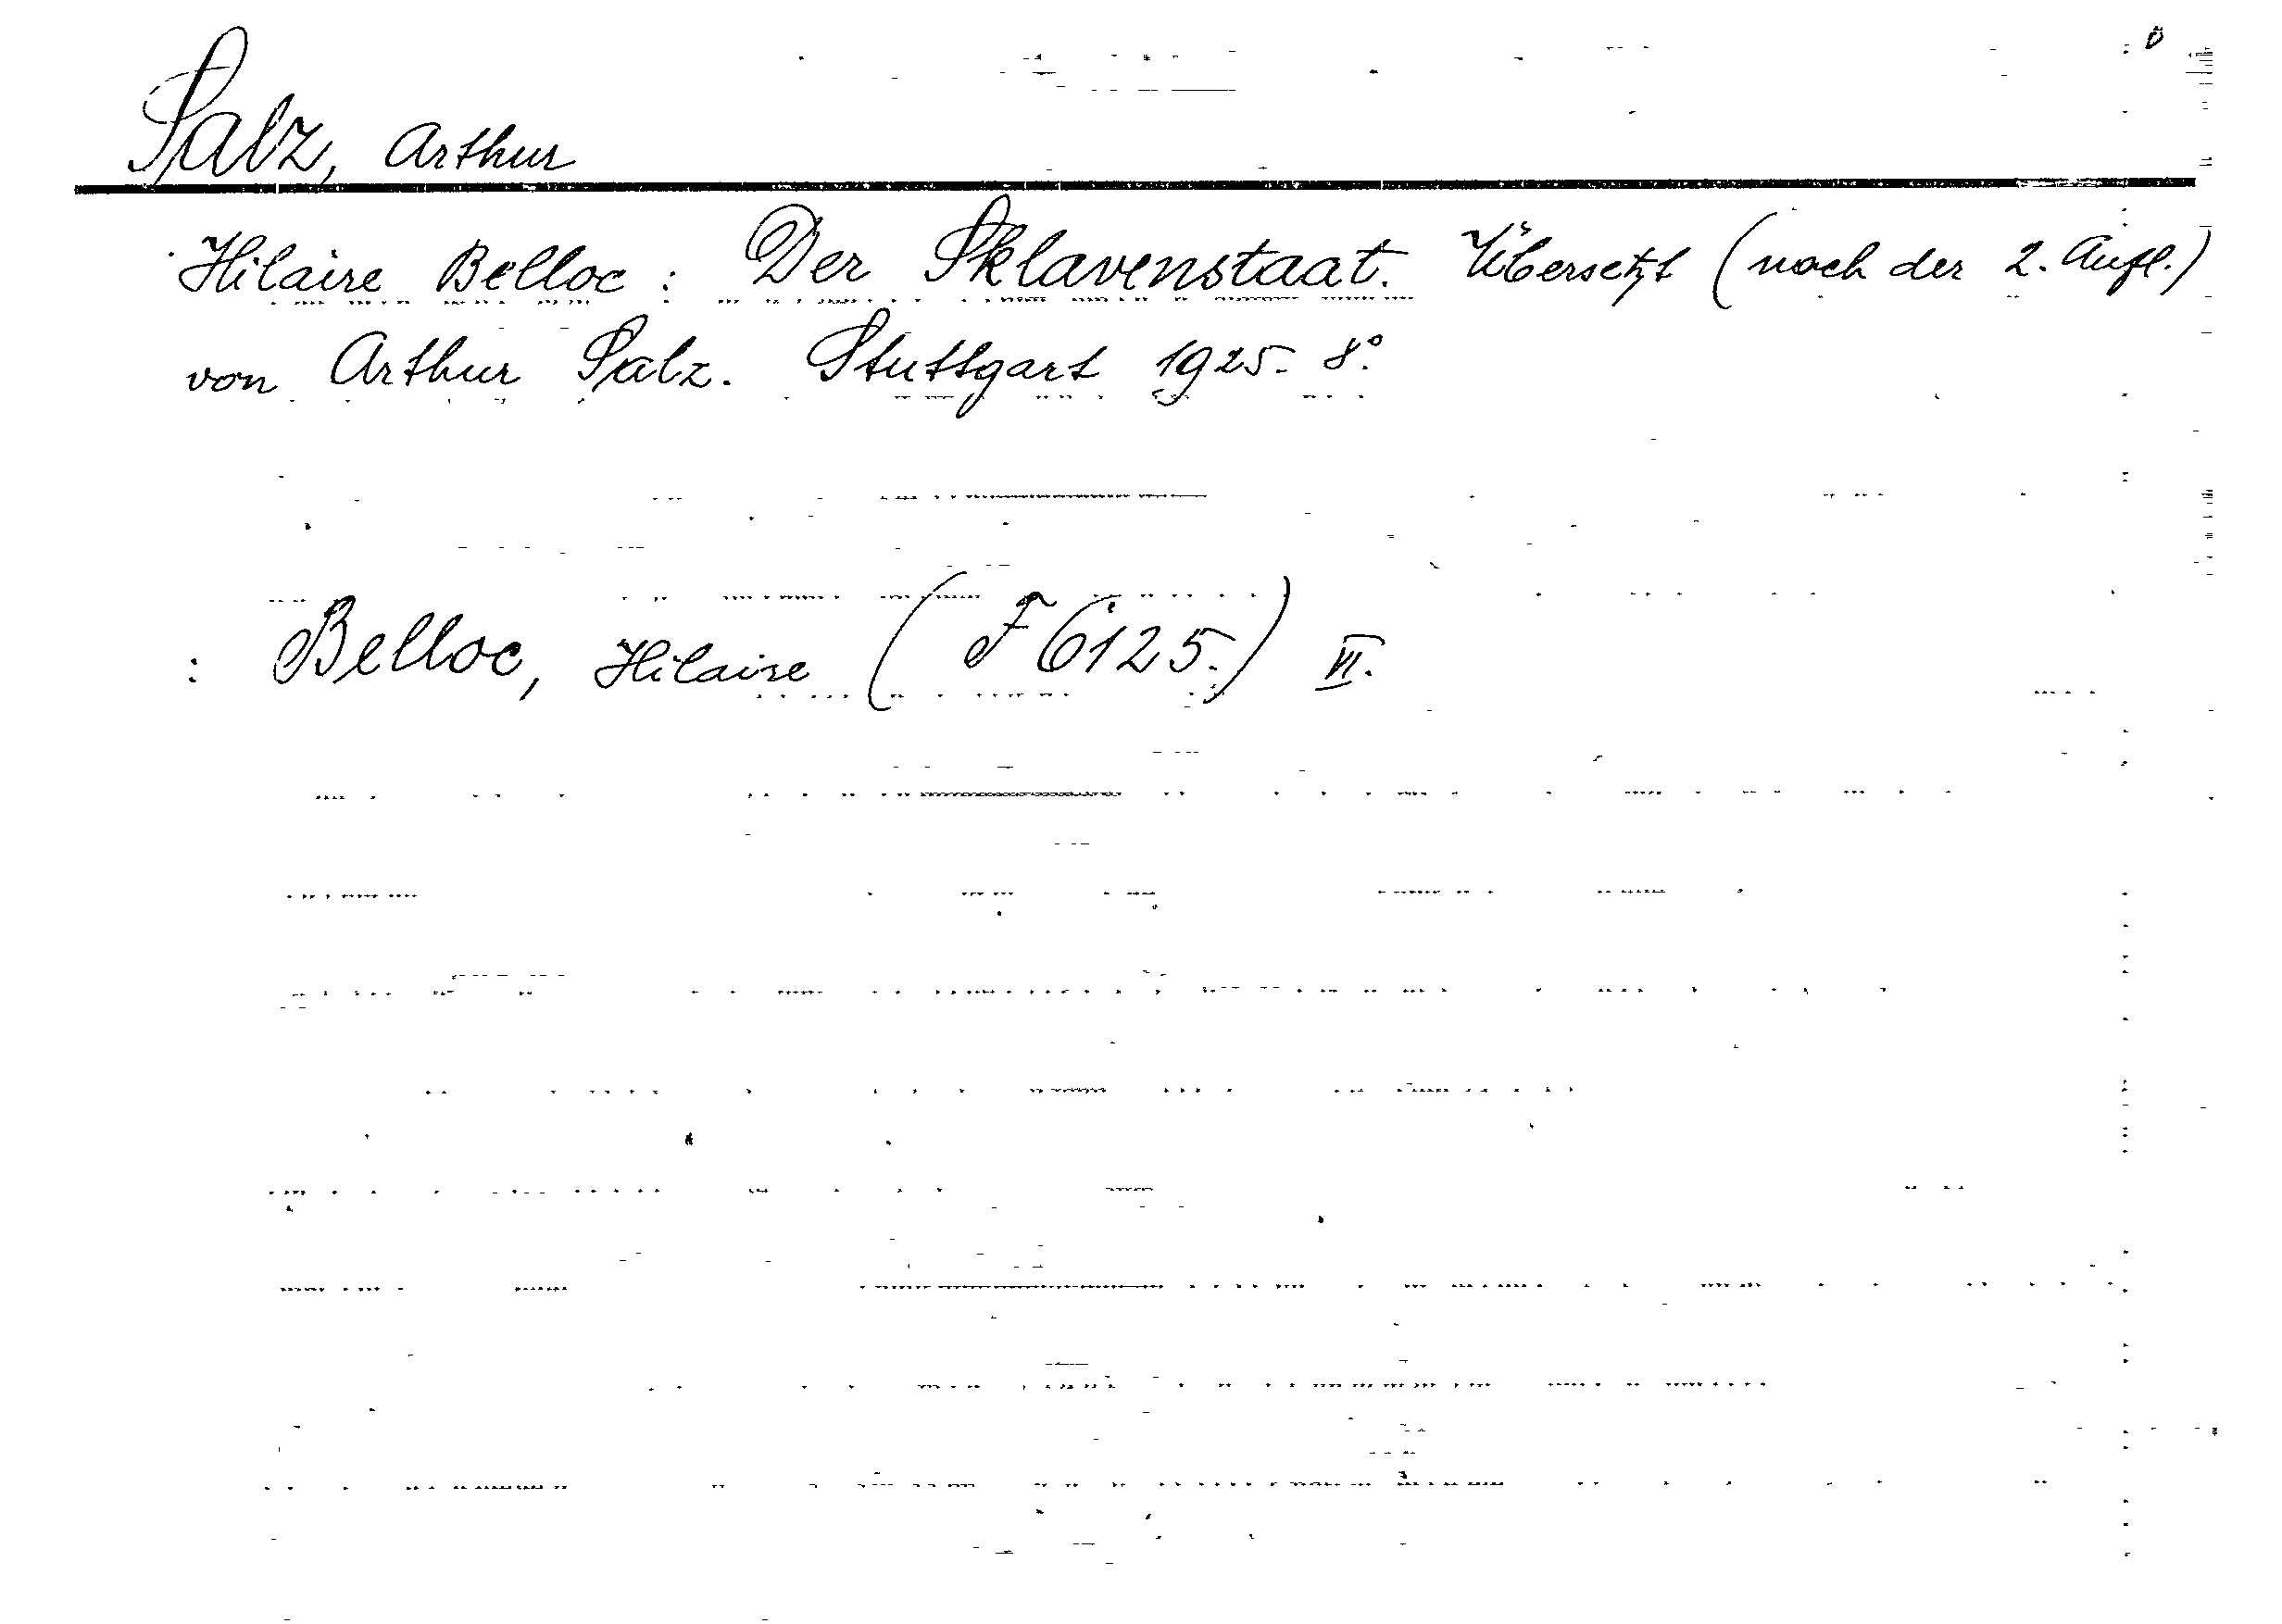 Salz, Arthur
Hilaire Belloc: Der Sklavenstaat. Übersetzt (nach der 2. Aufl.)
von Arthur Salz. Stuttgart 1925. 8°.
: Belloc, Hilaire (F 6125.) VI.